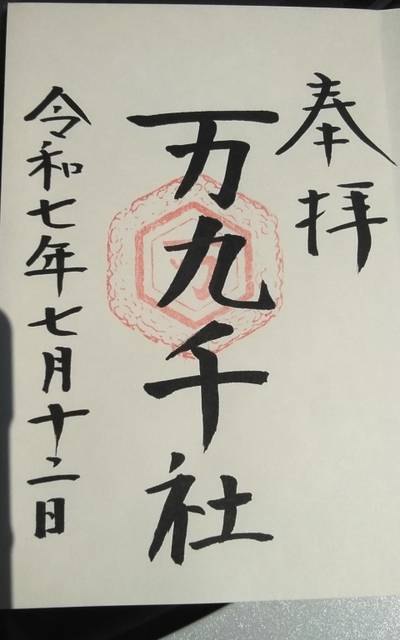 奉拝
万九千社
令和七年七月十二日